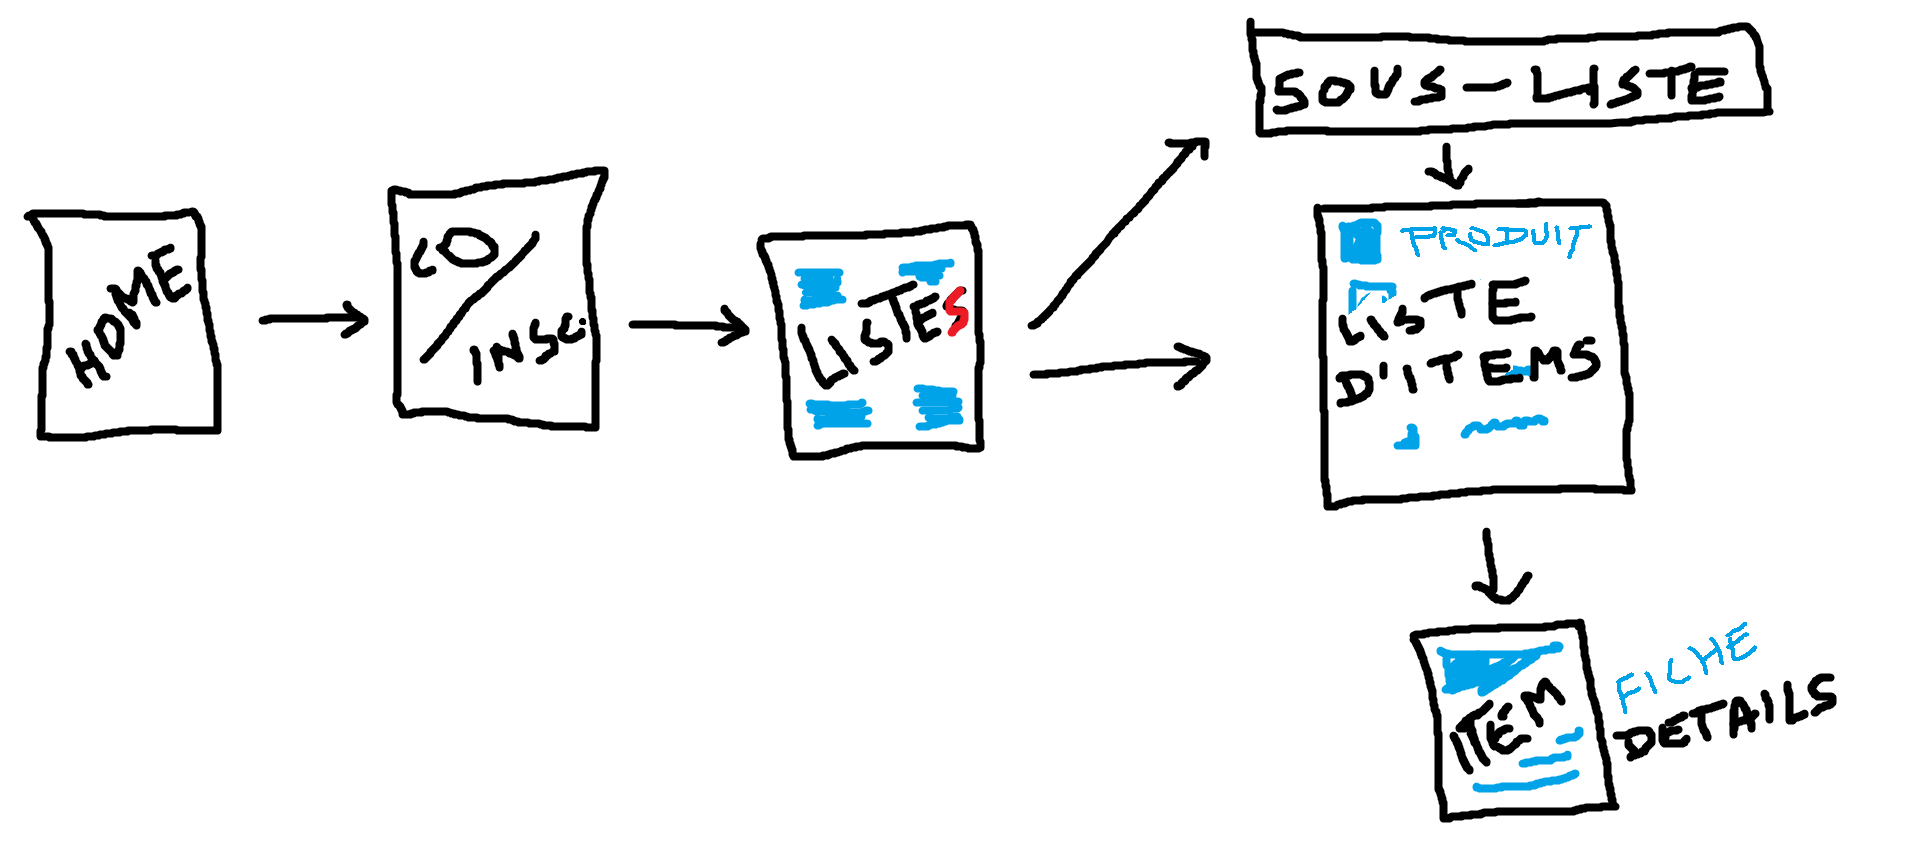 HOME
CO
/
INSC.
LISTES
SOUS-LISTE
PRODUIT
LISTE
D'ITEMS
ITEM
FICHE
DETAILS